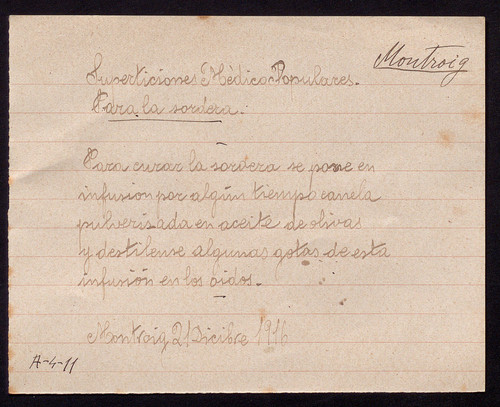 Montroig
Superticiones Médico Populares.
Para la sordera.
Para curar la sordera se pone en
infusion por algún tiempo canela
pulverisada en aceite de olivas
y destilense algunas gotas de esta
infusión en los oidos.
Montroig 21 Dicibre 1916
A-4-11